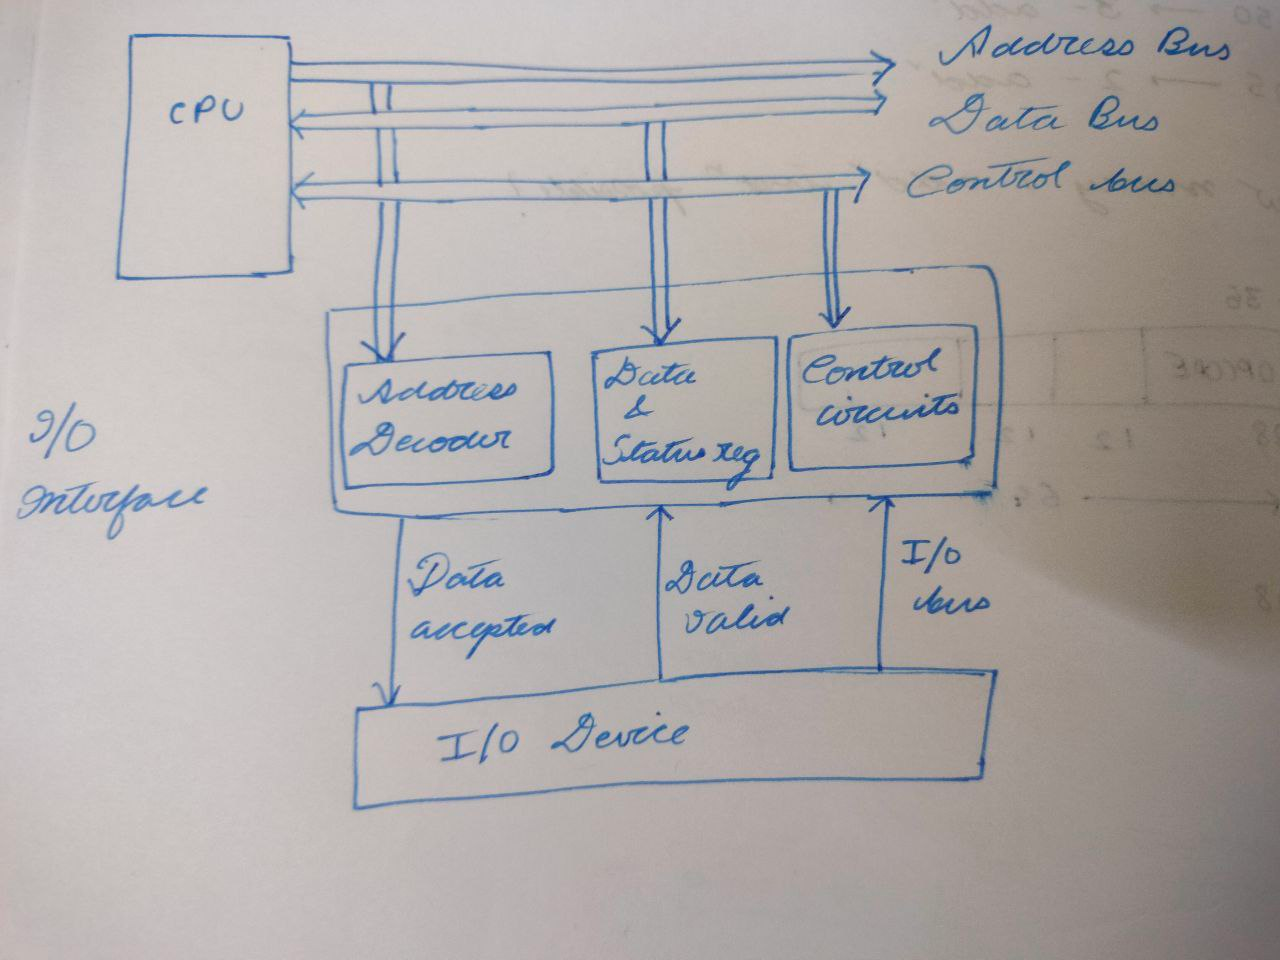 CPU
Address Bus
Data Bus
Control bus
Address
Decoder
Data
&
Status reg
Control
circuits
I/O
Interface
Data
accepted
Data
valid
I/O
bus
I/O Device